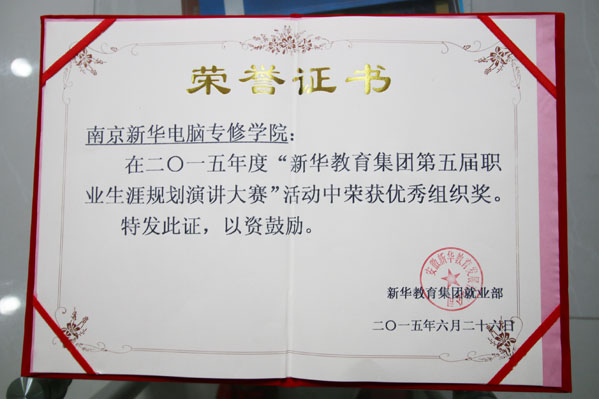 荣誉证书
南京新华电脑专修学院：
在二〇一五年度“新华教育集团第五届职
业生涯规划演讲大赛”活动中荣获优秀组织奖。
特发此证，以资鼓励。
新华教育集团就业部
二〇一五年六月二十六日